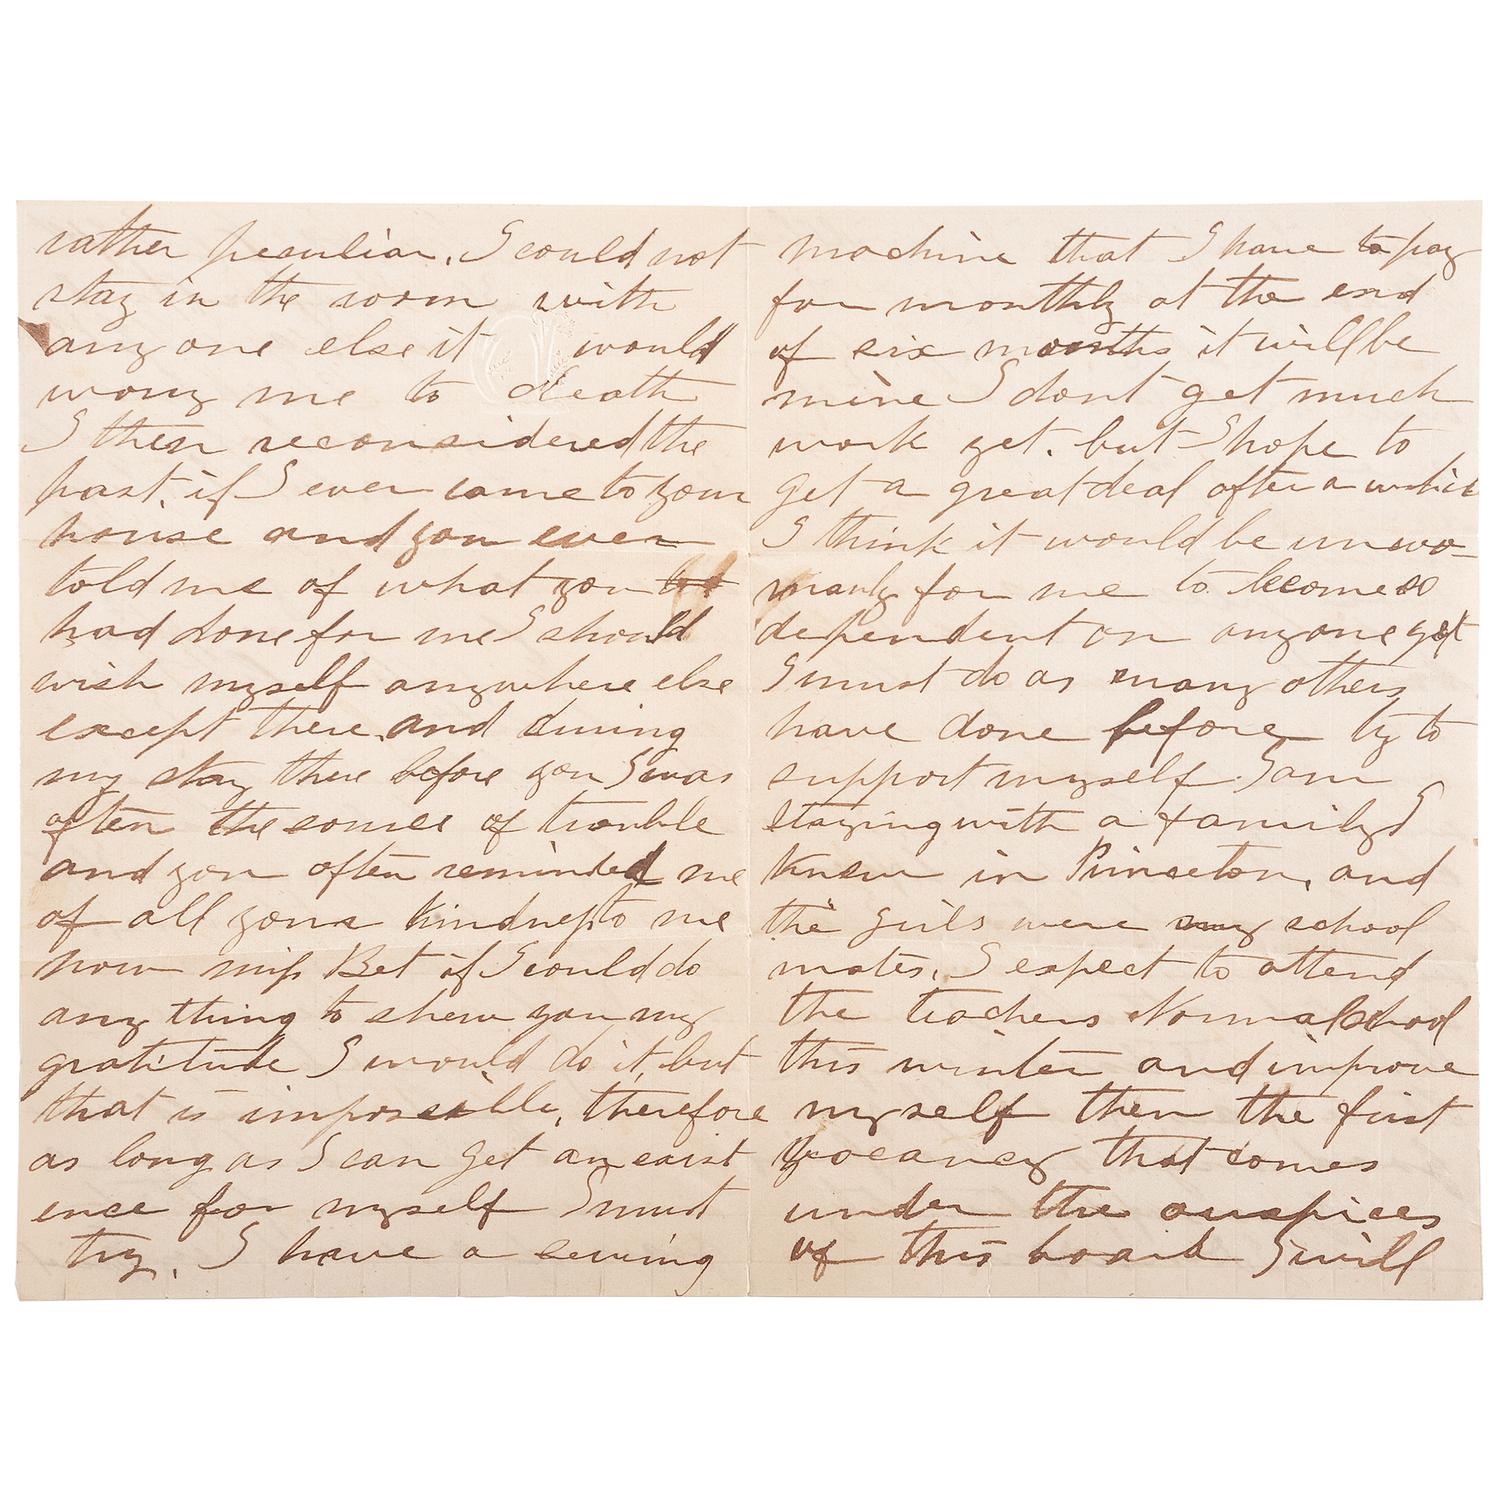 rather peculiar. I could not
stay in the room with
any one else it would
worry me to death
I then reconsidered the
past, if I ever came to your
house and you ever
told me of what you
had done for me I should
wish myself anywhere else
except there. and during
my stay there before you I was
often the source of trouble
and you often reminded me
of all your kindness to me
now miss Bet if I could do
any thing to shew you my
gratitude I would do it, but
that is impossible, therefore
as long as I can get an exist
ence for myself I must
try. I have a sewing
machine that I have to pay
for monthly at the end
of six months it will be
mine I dont get much
work yet. but I hope to
get a great deal after a while
I think it would be unwo-
manly for me to become so
dependent on anyone yet
I must do as many others
have done before try to
support myself. I am
staying with a family I
knew in Princeton, and
the girls were my school
mates, I expect to attend
the teachers Normal school
this winter and improve
myself then the first
vocancy that comes
under the auspices
of this board I will